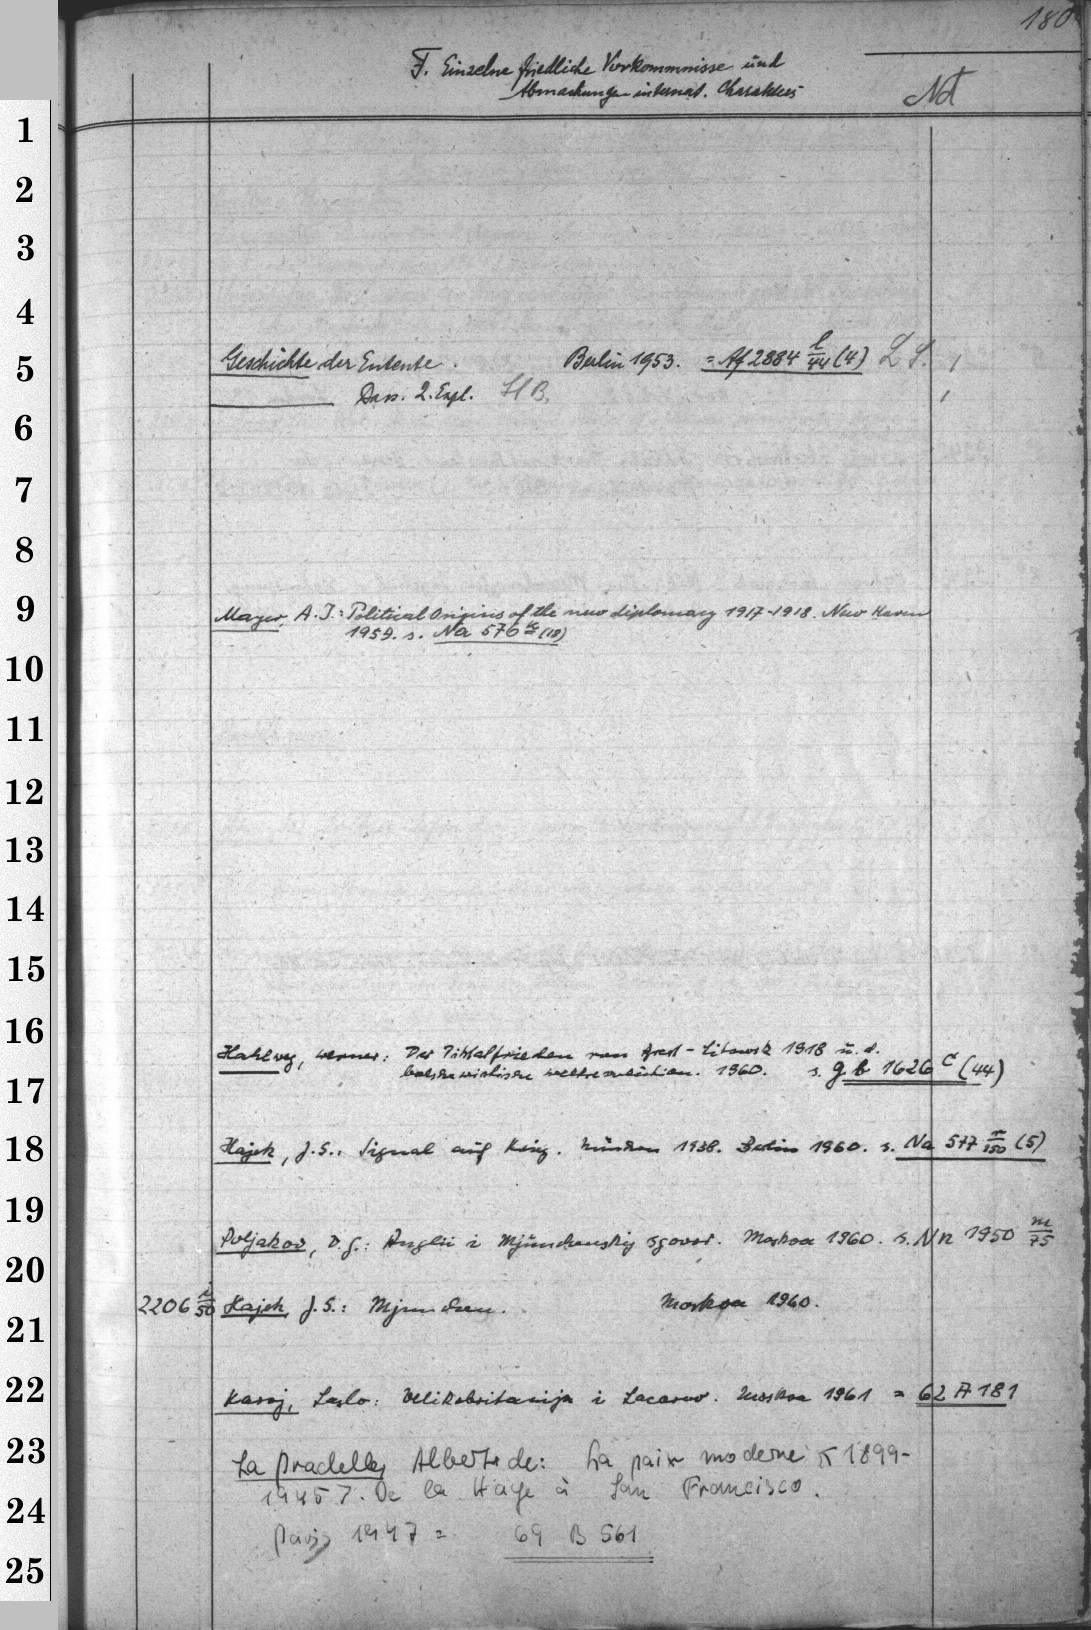 180
F. Einzelne friedliche Vorkommnisse und
Abmachungen internat. Charakters
Nd
1
2
3
4
5
6
7
8
9
10
11
12
13
14
15
16
17
18
19
20
21
22
23
24
25
Geschichte der Entente. Berlin 1953. = Af 2884 l/44 (4) LS.
Dass. 2. Expl. HB.
Mayer, A. J.: Political Origins of the new diplomacy 1917-1918. New Haven
1959. s. Na 576 (18)
Hahlweg, Werner: Der Diktatfrieden von Brest-Litowsk 1918 u. d.
bolschewistische Weltrevolution. 1960. s. gb 1626 c (44)
Hájek, J. S.: Signal auf Krieg. München 1938. Berlin 1960. s. Na 577 n/150 (5)
Poljakov, D. G.: Anglii i Mjunchenskij sgovor. Moskva 1960. s. Nn 1950 m/75
2206 i/50 Hajek, J. S.: Mjunchen. Moskva 1960.
Karoj, Laslo: Velikobritanija i Locarno. Moskva 1961 = 62 A 181
La Pradelle, Albert de: La paix moderne <1899-
1945>. De la Haye à San Francisco.
Paris 1947 = 69 B 561